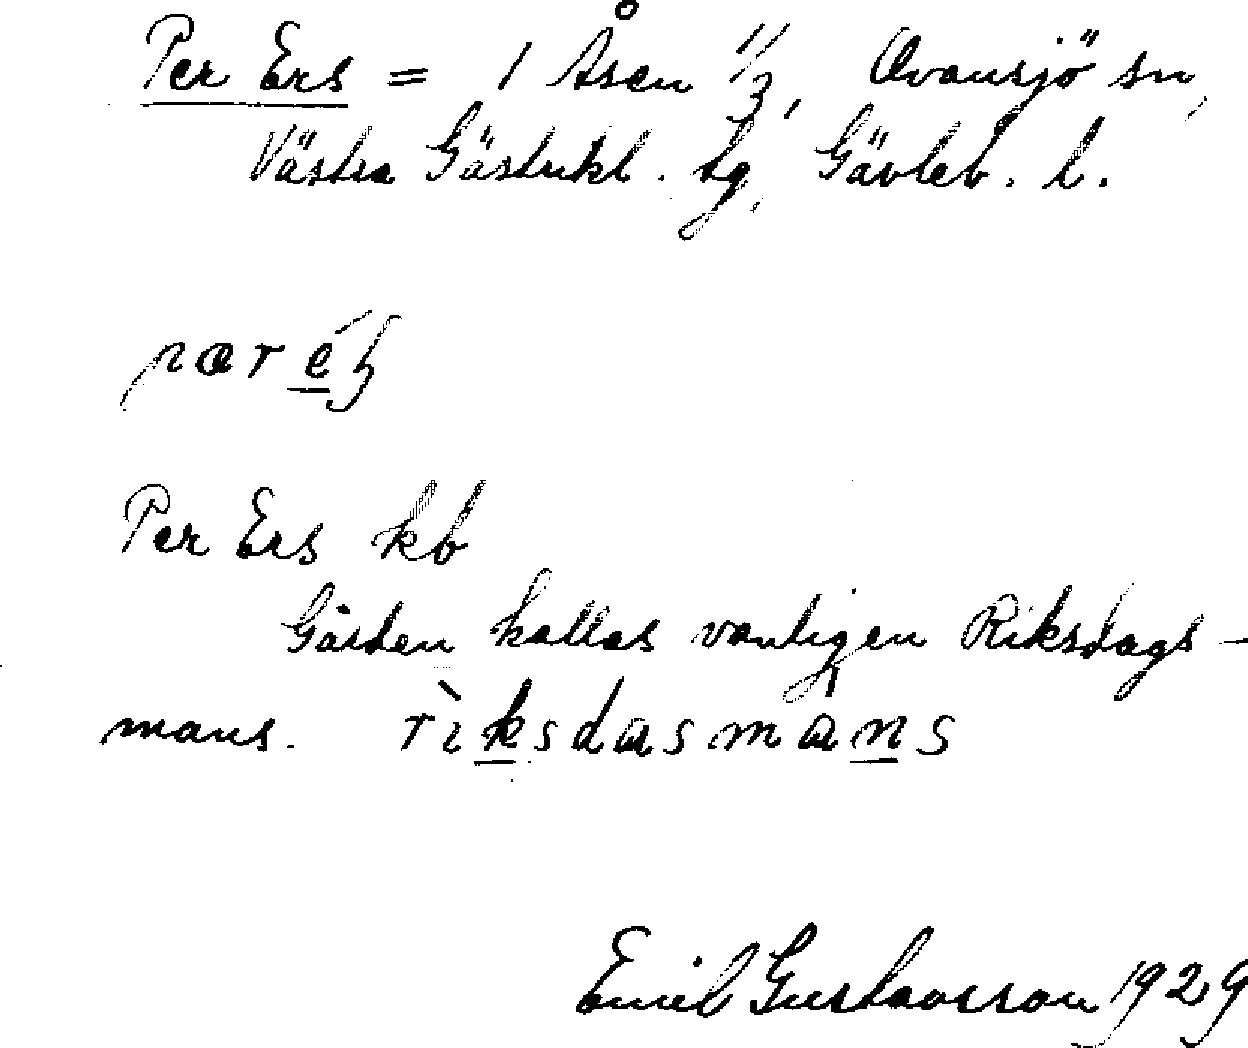 Per Ers = 1 Åsen 1/3, Ovansjö sn,
Västra Gästrikl. tg, Gävleb. l.
Per Ers kb
Gården kallas vanligen Riksdags-
mans. riksdasmans
Emil Gustavsson 1929